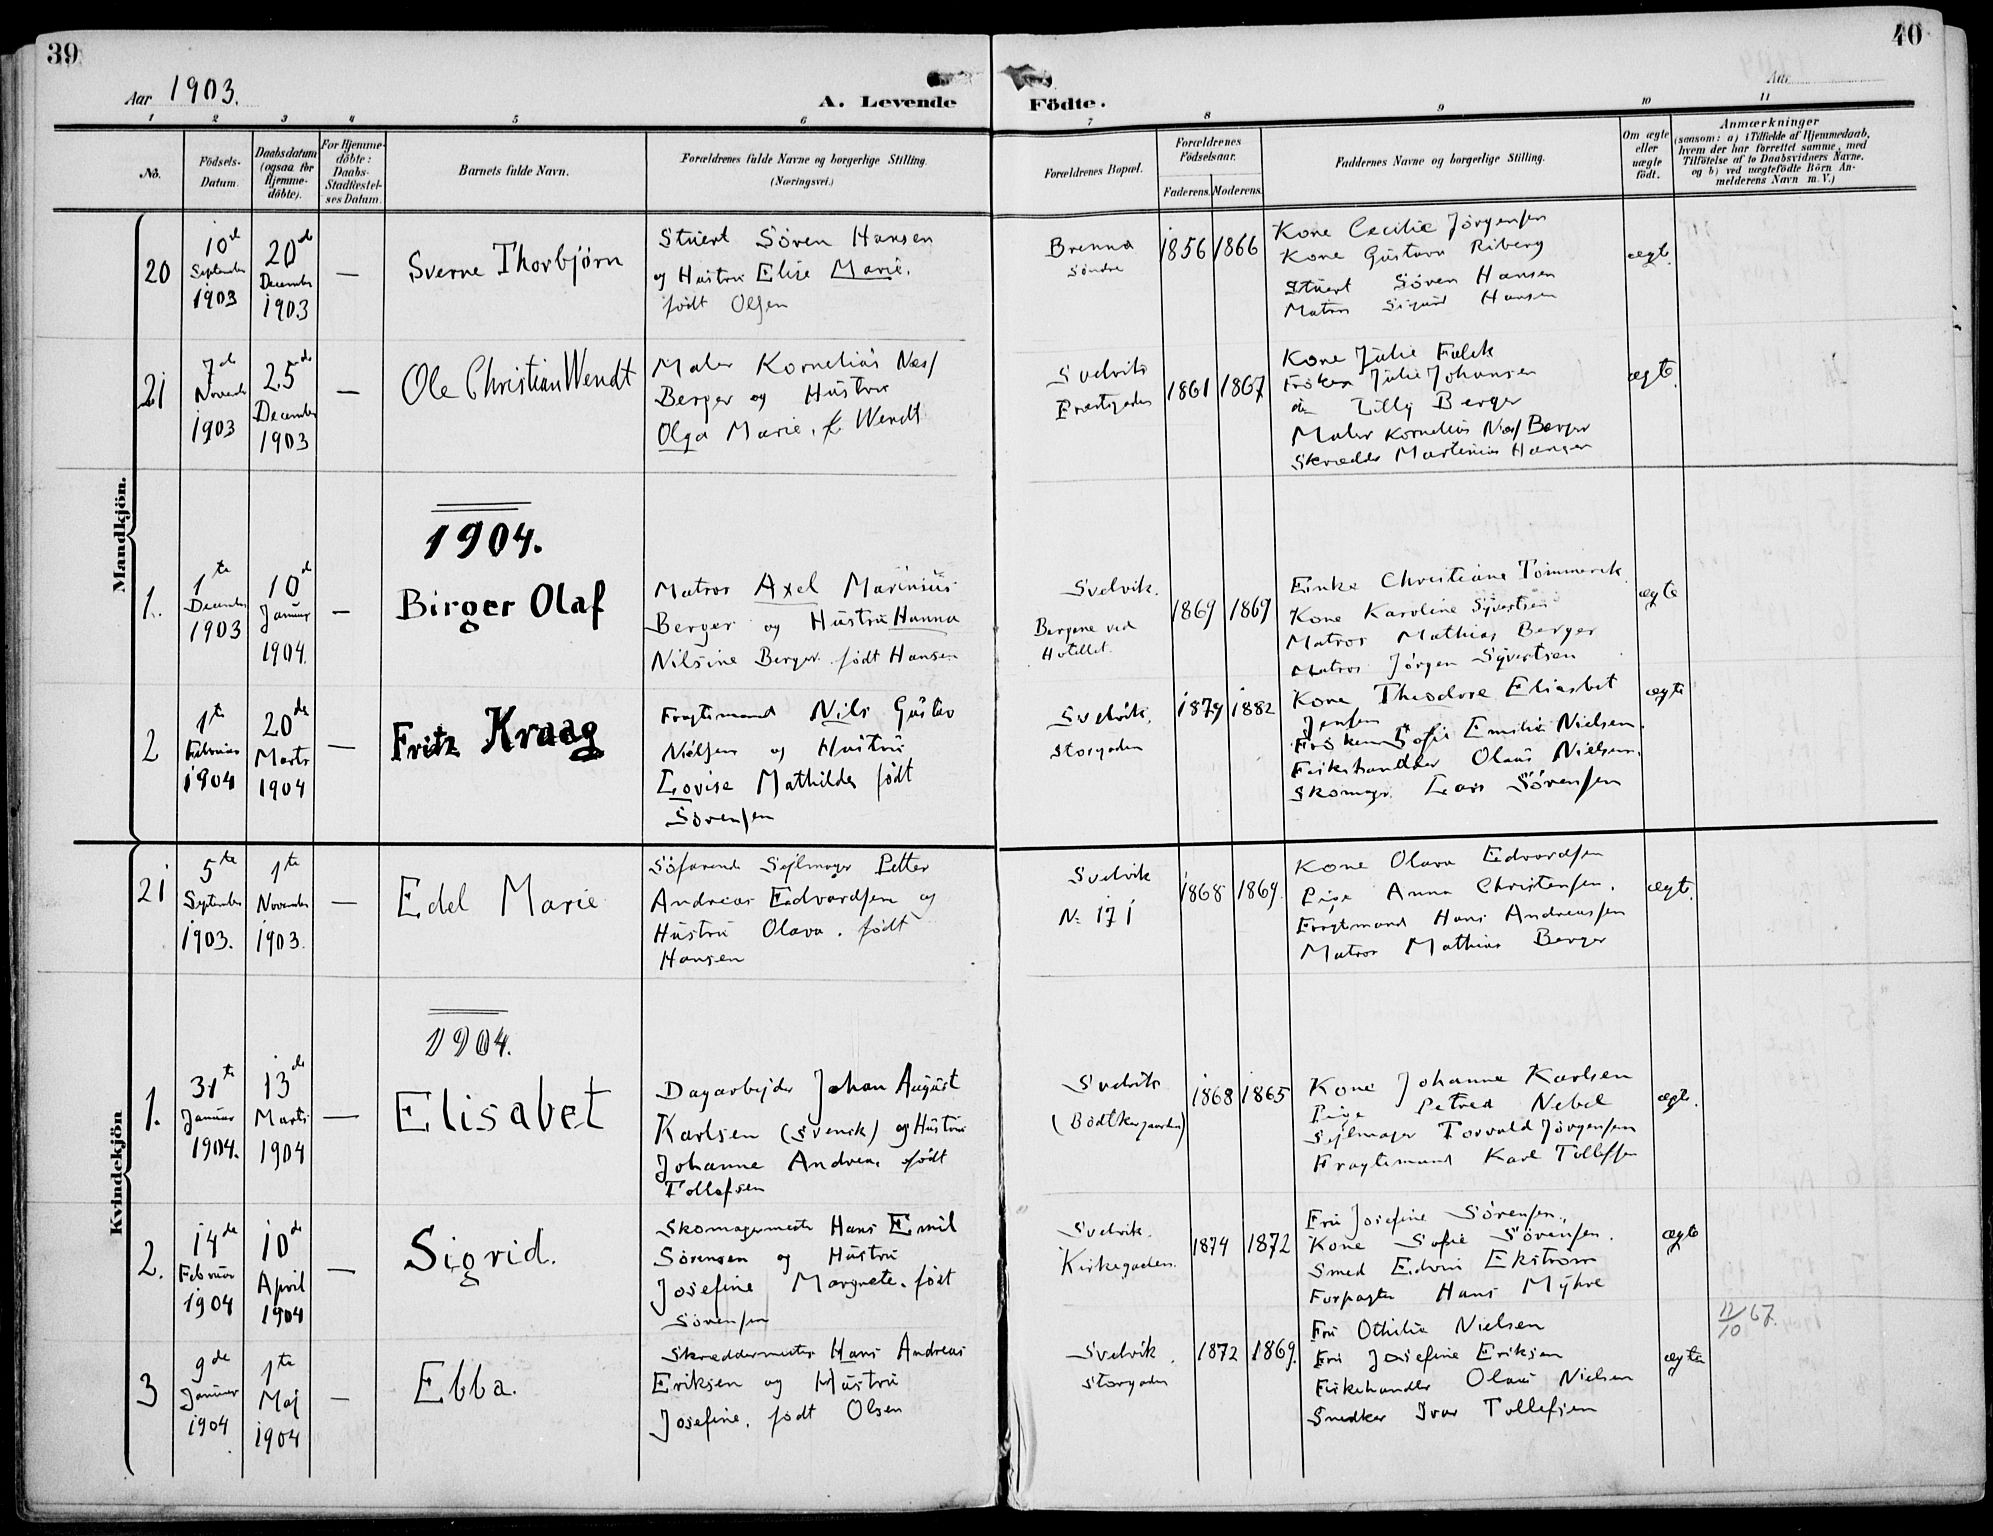 39
40
Aar 1903.
A. Levende
Födte.
Aar
1 2 3 4 5 6 7 8 9 10 11
No.
Födsels-
Datum.
Daabsdatum
(ogsaa för
Hjemme-
döbte).
For Hjemme-
döbte:
Daabs-
Stadfæstel-
ses Datum.
Barnets fulde Navn.
Forældrenes fulde Navne og borgerlige Stilling.
(Næringsvei.)
Forældrenes Bopæl.
Forældrenes
Födselsaar.
Faderens. Moderens.
Faddernes Navne og borgerlige Stilling.
Om ægte
eller
uægte
født.
Anmærkninger
(saasom: a) i Tilfælde af Hjemmedaab,
hvem der har forrettet samme, med
Tilföielse af to Daabsvidners Navne.
og b) ved uægtefödte Börn An-
melderens Navn m. V.)
Mandkjön.
20
10de
September
1903
20de
December
1903
—
Sverre Thorbjörn
Stuert Sören Hansen
og Hustru Elise Marie.
født Olsen
Brenna
Söndre
1856
1866
Kone Cecilie Jörgensen
Kone Gustava Riberg
Stuert Sören Hansen
Matros Sigurd Hansen
ægte.
21
7de
Novemb
1903
25de
December
1903
—
Ole Christian Wendt
Maler Kornelius Næs
Berger og Hustru
Olga Marie, f. Wendt
Svelvik
1861
1867
Kone Julie Falck
Fröken Julie Johansen
do Lilly Berger
Maler Kornelius Næs Berger
Skrædder Martinius Hansen
ægte.
1904.
1.
1te
December
1903
10de
Januar
1904.
—
Birger Olaf
Matros Axel Marinius
Berger og Hustru Hanna
Nilsine Berger født Hansen
Svelvik.
Bergene ved
Hotellet.
1869
1869
Enke Christiane Tømmerek
Kone Karoline Syvertsen
Matros Mathias Berger
Matros Jörgen Syvertsen
ægte
2
1te
Februar
1904
20de
Marts
1904
—
Fritz Kraag
Fragtemand Nils Gustav
Nielsen og Hustru
Lovise Mathilde født
Sörensen
Svelvik.
Storgaden
1879
1882
Kone Theodora Eliesbet
Jensen
Fröken Sofie Emilie Nielsen.
Fiskehandler Olaus Nielsen.
Skomager Lars Sörensen
ægte
Kvindekjön
21
5te
September
1903.
1te
November
1903.
—
Edel Marie
Söfarende Sejlmager Petter
Andreas Edvardsen og
Hustru Olava. født
Hansen
Svelvik
No 171
1868
1869
Kone Olava Edvardsen
Pige Anna Christensen.
Fragtemand Hans Andreassen
Matros Mathias Berger
ægte.
1904.
1.
31te
Januar
1904.
13de
Marts
1904
—
Elisabet
Dagarbejder Johan August
Karlsen (svensk) og Hustru
Johanne Andrea, født
Tollefsen
Svelvik
(Bödtkergaarden)
1868
1865
Kone Johanne Karlsen
Pige Petrea Nebel
Sejlmager Torvald Jörgensen
Fragtemand Karl Tollefsen
ægte.
2.
14de
Februar
1904
10de
April
1904
—
Sigrid.
Skomagermester Hans Emil
Sörensen og Hustru
Josefine Margrete. født
Sörensen
Svelvik.
Kirkegaden.
1874
1872
Fru Josefine Sörensen.
Kone Sofie Sörensen.
Smed Edvin Ekström
Forpagter Hans Myhre
ægte
3
9de
Januar
1904
1te
Maj
1904
—
Ebba.
Skreddermester Hans Andreas
Eriksen og Hustru
Josefine, født Olsen
Svelvik.
Storgaden
1872
1869.
Fru Othilie Nielsen
Fru Josefine Eriksen
Fiskehandler Olaus Nielsen
Snedker Ivar Tollefsen
ægte
12/10 67.